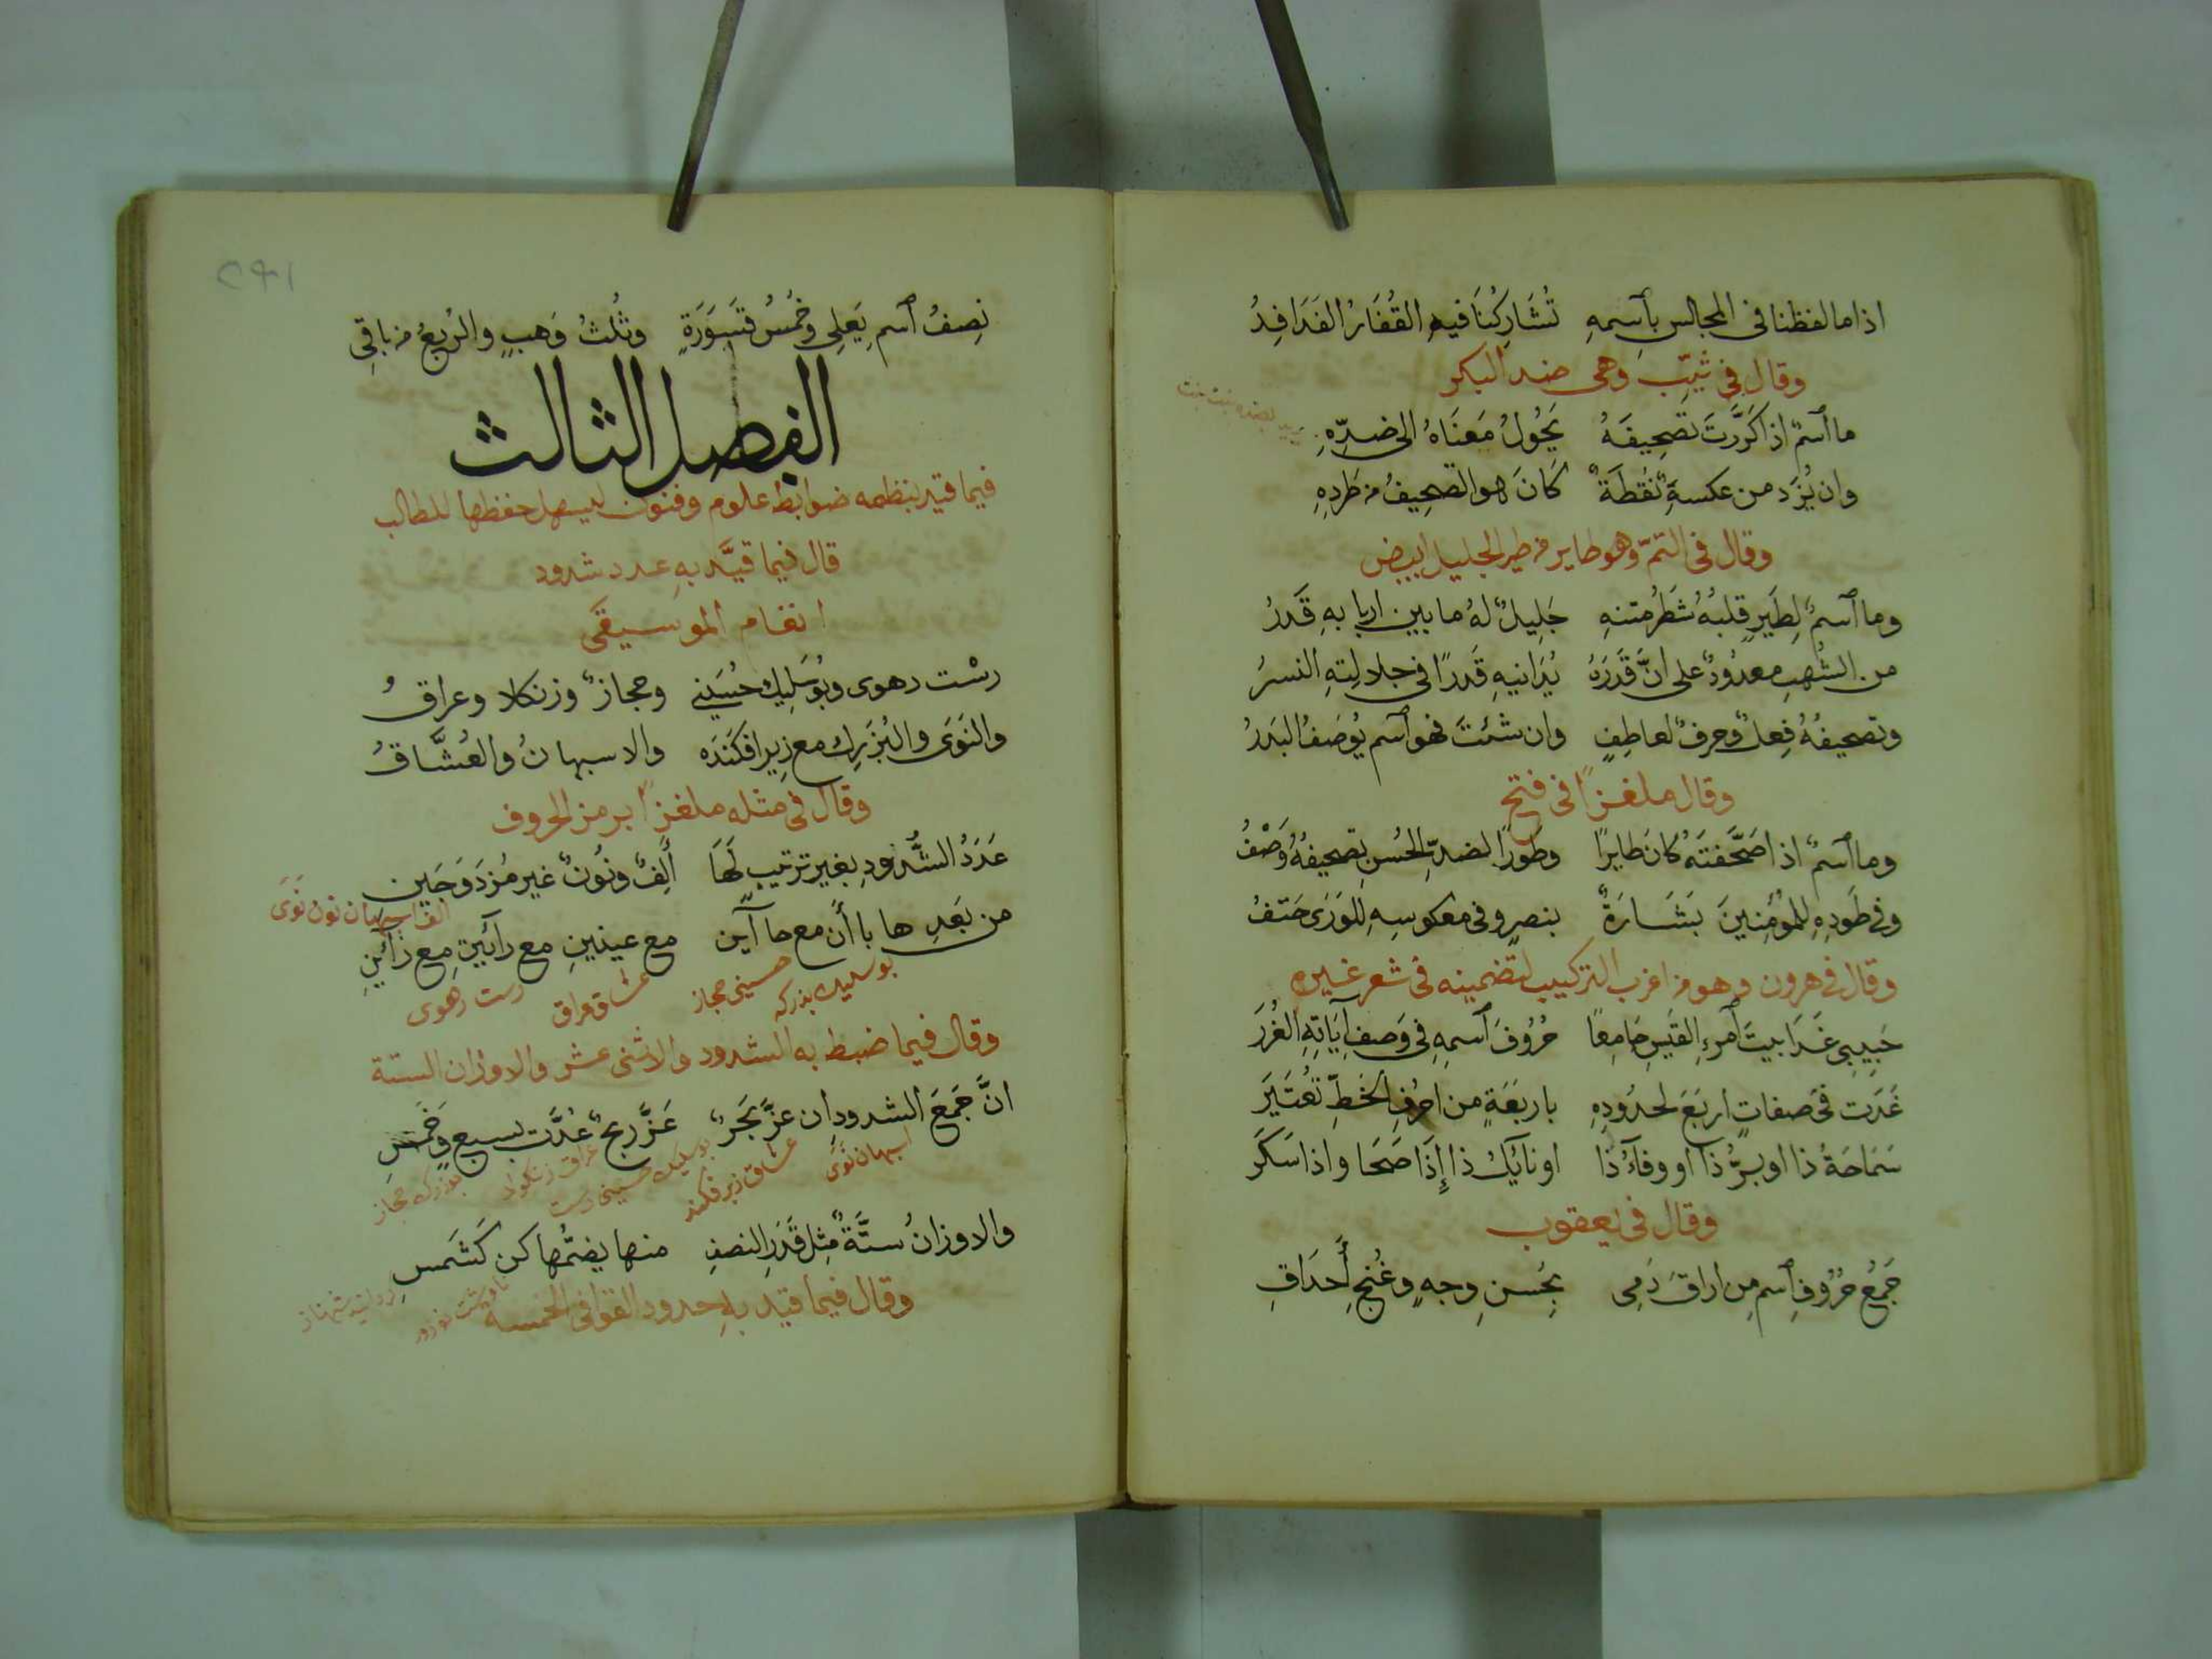 اذا ما لفظنا فى المجالس بٱسمهِ تُشَارِكُنَا فيهِ القُفَارُ الفَدَافِدُ
وقال فى ثيّبٍ وهى ضد البكر
ما ٱسمٌ اذا كَرَّرتَ تَصحِيفَهُ يَحُولُ مَعنَاهُ الى ضِدِّهِ
وان يُزَد من عكسهِ نُقطَةٌ كَانَ هو التصحِيفُ من طَردِهِ
وقال فى التمّ وهو طاير من طير الجليل ابيض
وما ٱسمٌ لِطَيرٍ قلبُهُ شَطرُ متنهِ جَلِيلٌ لهُ ما بين اربابهِ قَدرُ
من الشُهبِ معدُودٌ على انَّ قَدرَهُ يُدَانيهِ قَدرًا فى جلالتِهِ النسرُ
وتصحيفُهُ فِعلٌ وحرفٌ لعاطِفٍ وان شئتَ فهو ٱسم يُوصَفُ البَدرُ
وقال ملغزًا فى فتح
وما ٱسمٌ اذا صَحَّفتَهُ كانَ طايرًا وطَورًا لضدِّ الحُسنِ تصحيفُهُ وَصْفُ
وفى طَردِهِ للمُؤمِنينَ بَشَارَةٌ بنصرٍ وفى معكوسِهِ لِلوَرَى حَتفُ
وقال فى هرون وهو من اغرب التركيب لتضمينه فى شعر غيره
حَبِيبِى غَدَا بيتَ ٱمرءِ القَيسِ جَامِعًا حُرُوفَ ٱسمِهِ فى وَصفِ آيَاتِهِ الغُرَرَ
غَدَت فى صفاتٍ اربَعَ لحدُودِهِ باربَعَةٍ من احرُفِ الخَطِّ تُعتَبَرَ
سَمَاحَةُ ذا او بِرُّ ذا او وفآءُ ذا او نايلُ ذا إِذَا صَحَا واذا سَكَرَ
وقال فى يعقوب
جَمعُ حُرُوفِ ٱسمِ مِن اراقَ دَمِى بِحُسنِ وجهٍ وغُنجِ أَحدَاقِ
نِصفُ ٱسمِ يَعلِى وخُمسُ قسَوَرَةٍ وثُلثُ وَهبٍ والرُبعُ من باقِى
الفصل الثالث
فيما قيد بنظمه ضوابط علوم وفنون ليسهل حفظها للطالب
قال فيما قيَّد بهِ عدد شدود
انغام الموسيقى
رسْت رهوى وبُوسَلِيك حُسَينِى وحجازٌ وزنكلا وعراقُ
والنَوَى والبُزرِك مع زِيرافكَندَه والاسبهانُ والعُشَّاقُ
وقال فى مثله ملغزًا برمز الحروف
عَدَدُ الشُّدودِ بغير ترتيبٍ لَهَا أَلِفٌ ونُونٌ غير مُزدَوَجَين
الف اسبهان نون نَوَى
من بَعدِها باأَن مع حاآين مع عينينِ مع رآئَينِ مع زآئينِ
بوسليك بزركه حسينى حجاز عشاق عراق رست رهوى
وقال فيما ضبط به الشدود الاثنى عشر والاوزان الستة
انَّ جَمعَ الشدودِ ان عزَّ بَحرٌ عَزَّ ربحٌ عُدَّت بسبعٍ وخَمسِ
اسبهان نَوَى عشاق زيرفكند بوسليك حسينى رست عراق زنكولا بوزرك حجاز
والاوزانُ ستَّةٌ مِثل قَدرِ النصفِ منها يضمُّها كن كَشَمسِ
وقال فيما قيد بهِ حدود القوافى الخمسة